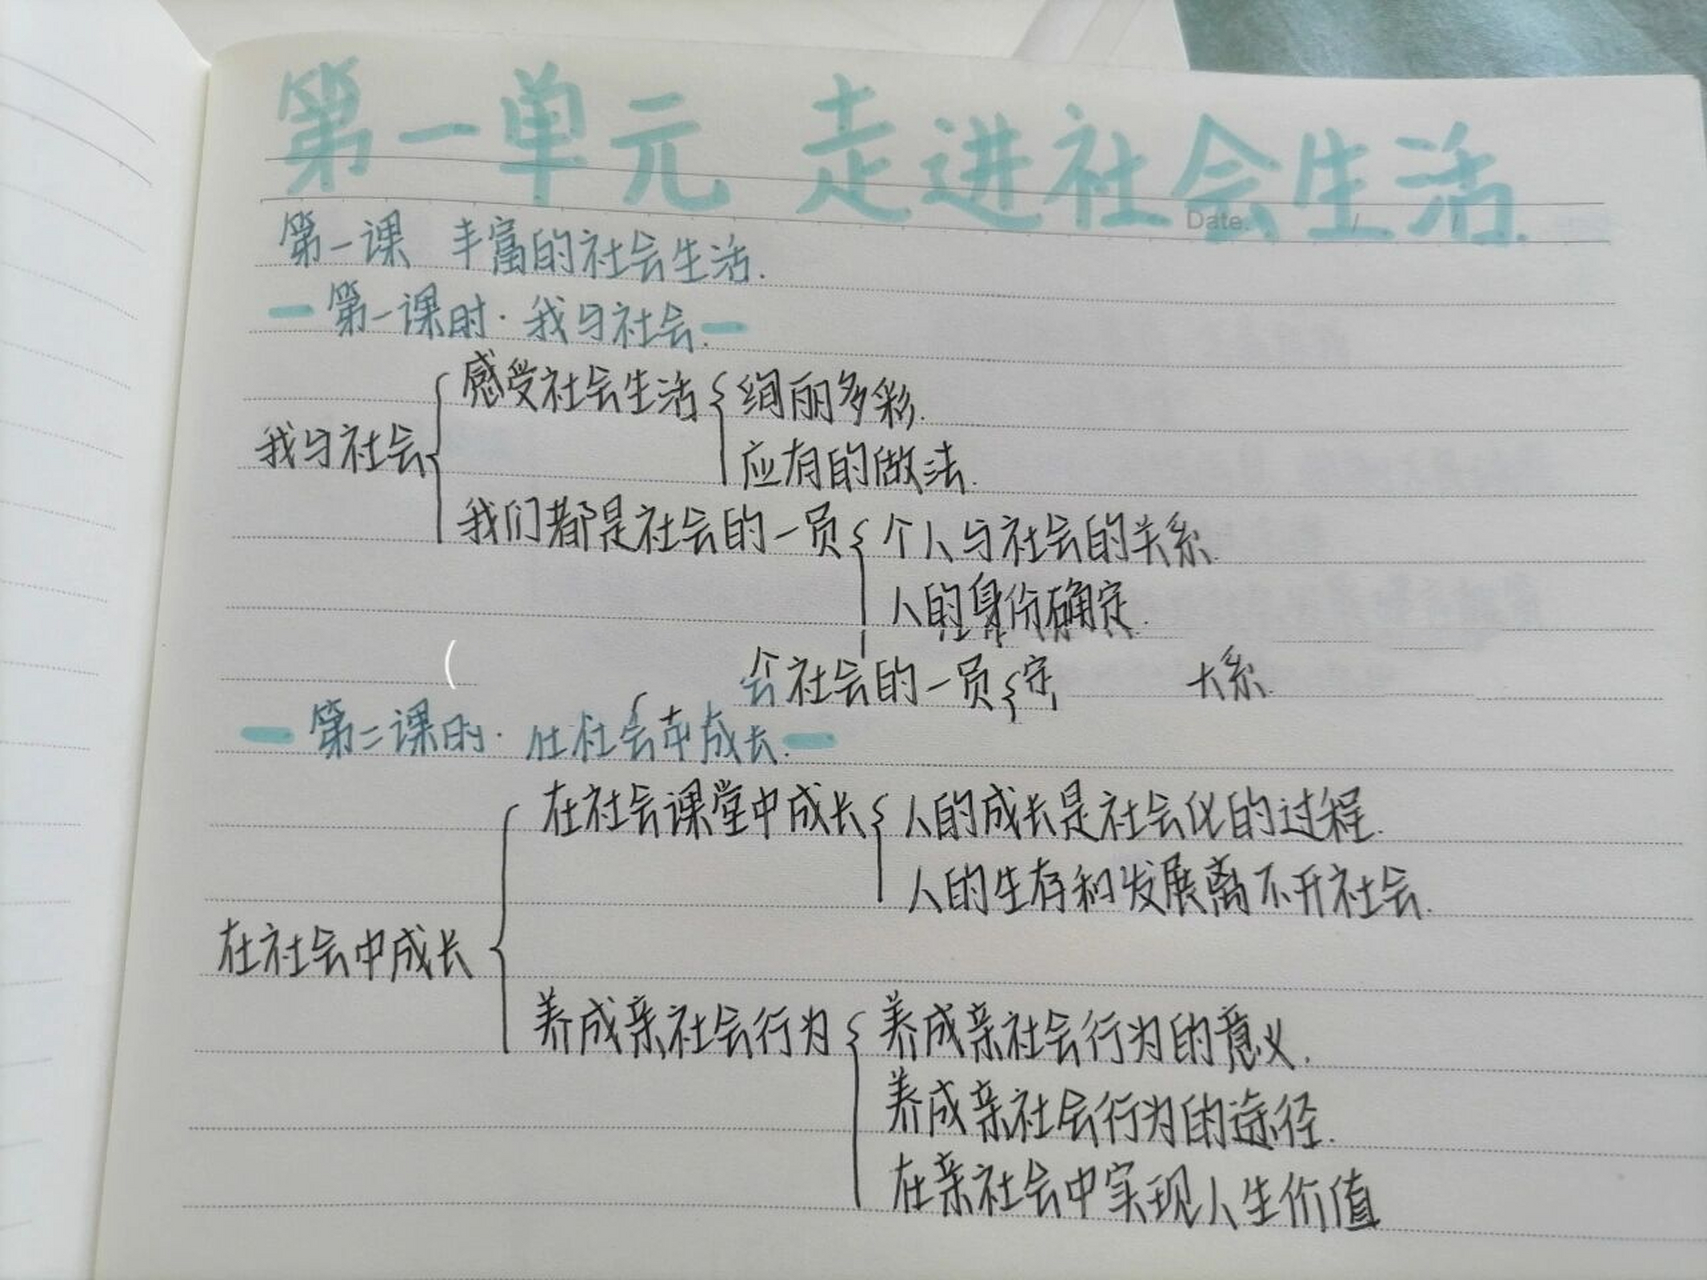 第一单元 走进社会生活.
Date:
第一课 丰富的社会生活.
第一课时·我与社会.
我与社会
感受社会生活
绚丽多彩.
应有的做法.
我们都是社会的一员
个人与社会的关系.
人的身份确定.
社会的一员 系.
第二课时· 在社会中成长.
在社会中成长
在社会课堂中成长
人的成长是社会化的过程.
人的生存和发展离不开社会.
养成亲社会行为
养成亲社会行为的意义.
养成亲社会行为的途径.
在亲社会中实现人生价值